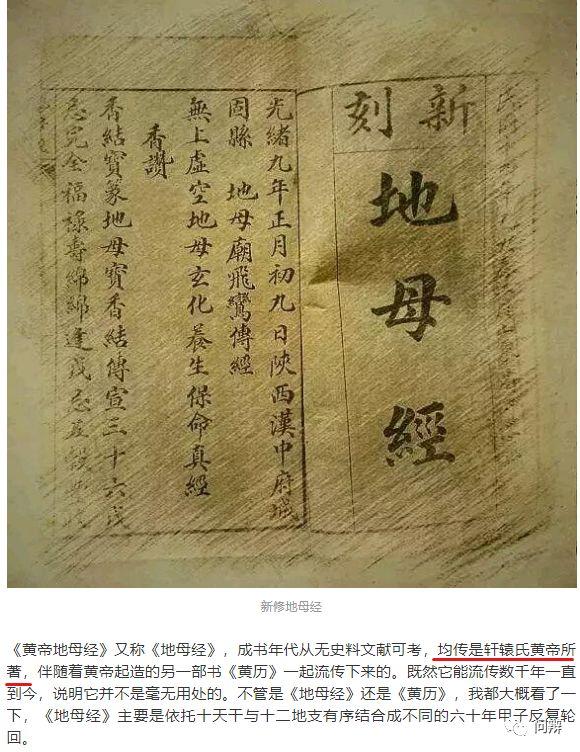 新刻
地母經
光緒九年正月初九日陝西漢中府城
固縣 地母廟飛鸞傳經
無上虛空地母玄化養生保命真經
香讚
香結寶篆地母寶香結傳宣三十六戊
忌完全福祿壽綿綿逢戊忌五穀
新修地母经
《黄帝地母经》又称《地母经》，成书年代从无史料文献可考，均传是轩辕氏黄帝所
著，伴随着黄帝起造的另一部书《黄历》一起流传下来的。既然它能流传数千年一直
到今，说明它并不是毫无用处的。不管是《地母经》还是《黄历》，我都大概看了一
下，《地母经》主要是依托十天干与十二地支有序结合成不同的六十年甲子反复轮
回。
问辨